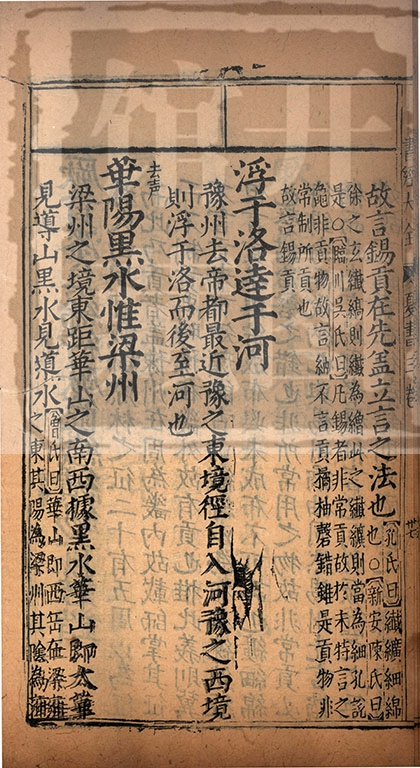 故言錫貢在先盖立言之法也【孔氏曰】纎纊細綿
也○【新安陳氏曰】
徐之玄纎縞則纎為繒此之纎纊則當為細孔說
是○【臨川吳氏曰】凡錫者非常貢故於末特言之
龜非貢物故言納不言貢橘柚磬錯雖是貢物非
常制所貢也
故言錫貢
浮于洛逹于河
豫州去帝都最近豫之東境徑自入河豫之西境
則浮于洛而後至河也
去声
華陽黒水惟梁州
梁州之境東距華山之南西據黒水華山即太華
見導山黒水見導水【曾氏曰】華山即西岳在梁雍
之東其陽為梁州其陰為雍